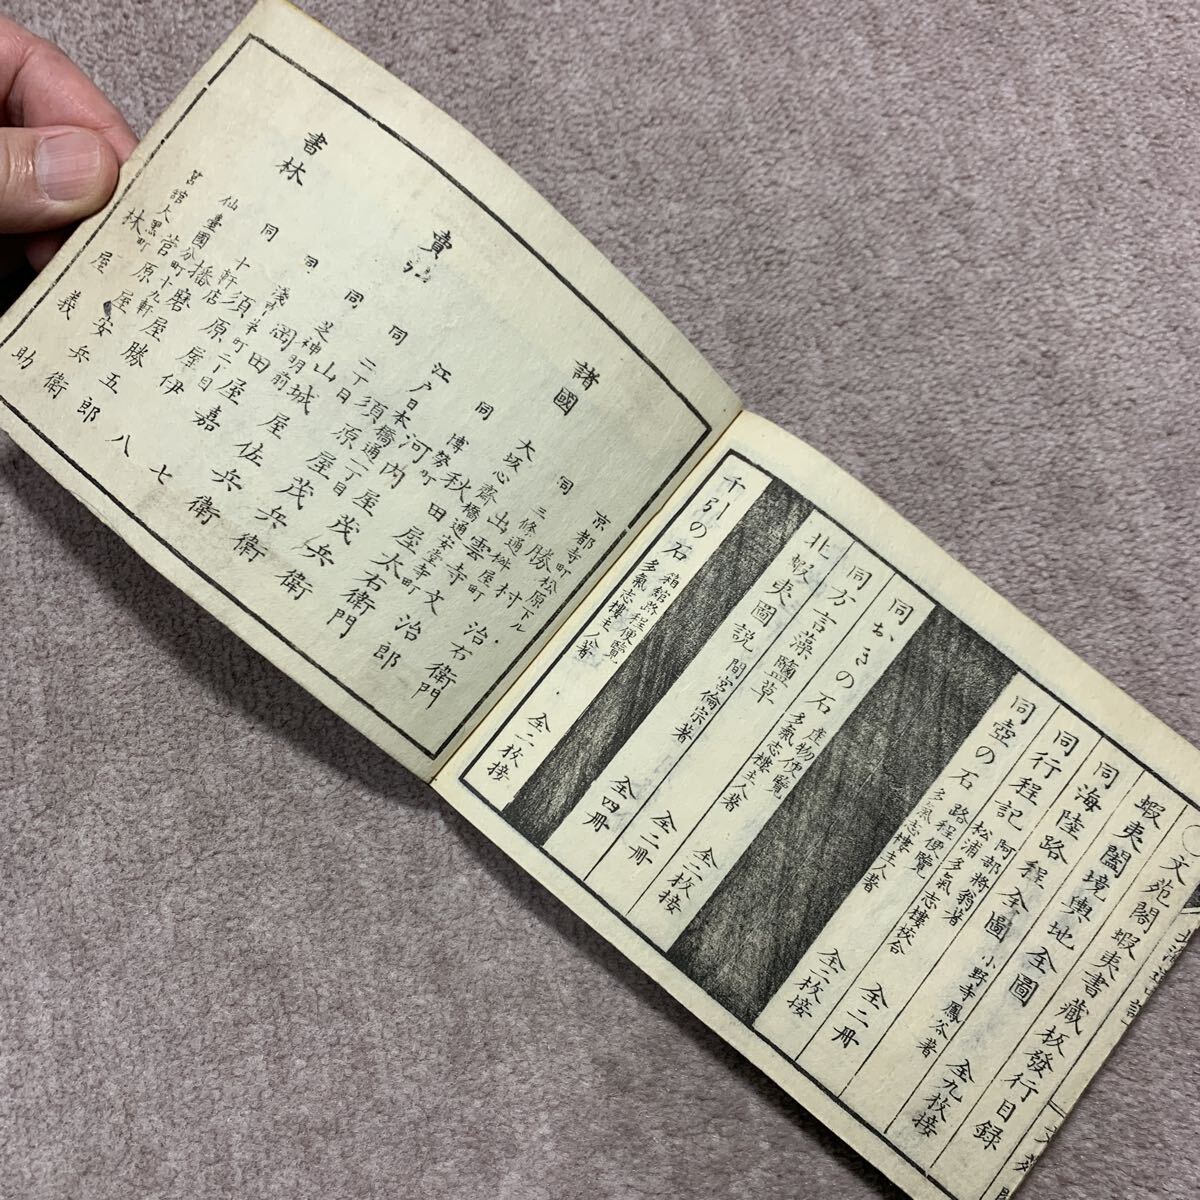 文苑閣蝦夷書藏板發行目録
蝦夷闔境輿地全圖
同海陸路程全圖 小野寺鳳谷著 全九枚接
同行程記 阿部將翁著 松浦多氣志樓校合 全二冊
同壺の石 路程便覽 多氣志樓主人著 全二枚接
同おきの石 産物便覽 多氣志樓主人著 全二枚接
同方言藻鹽草 全二冊
北蝦夷圖説 間宮倫宗著 全四冊
千引の石 箱館路程便覽 多氣志樓主人著 全二枚接
諸國
賣弘
書林
京都寺町松原下ル
勝村治右衛門
同三條通桝屋町
出雲寺文治郎
大坂心齋橋通安堂寺町
秋田屋太右衛門
同博勞町
河内屋茂兵衛
江戸日本橋通一丁目
須原屋茂兵衛
同二丁目
山城屋佐兵衛
同芝神明前
岡田屋嘉七
同淺草茅町二丁目
須原屋伊八
同十軒店
播磨屋勝五郎
仙臺國分町十九軒
菅原屋安兵衛
筥館大黒町
林屋義助